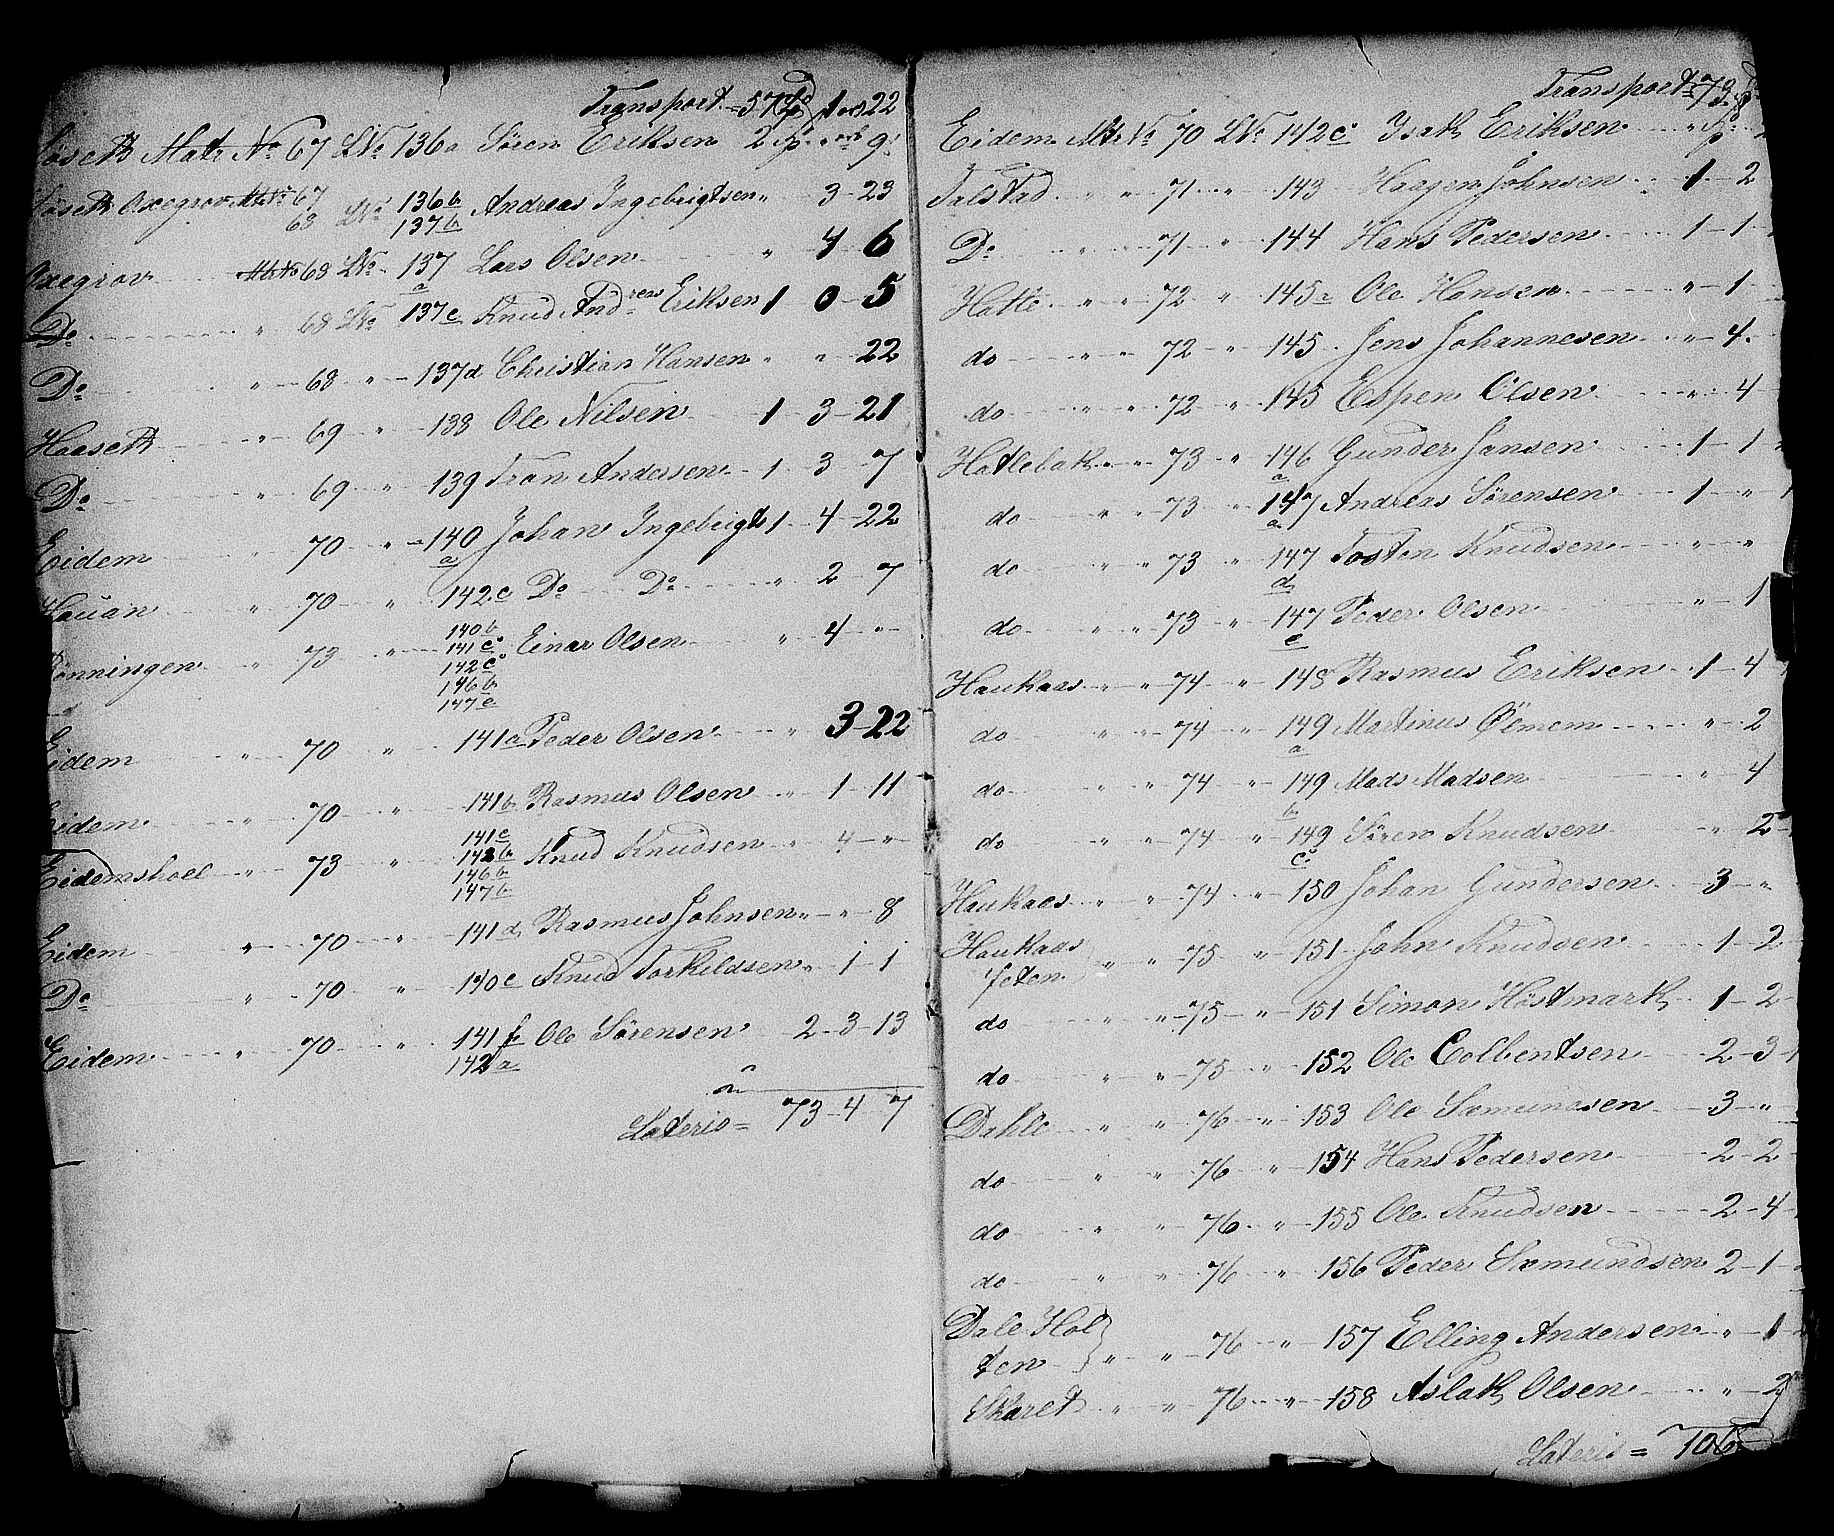 Transport = 57 1 22
Matr No 67 LNo 136a Sören Eriksen 2 9
Oxegrov MNo 67 68 LNo 136b 137b Andreas Ingebrigtsen " 3 - 23
Oxegrov MNo 68 LNo 137 a Lars Olsen " 4 6
Do " 68 LNo 137c Knud Andreas Eriksen 1 0 - 5
Do " 68 " 137d Christian Hansen " " 22
Haaseth " 69 " 138 Ole Nilsen 1 - 3 - 21
Do " 69 " 139 Andersen 1 3 - 7
Eidem " 70 " 140 a Johan Ingebrigt 1 - 4 - 22
Hauan " 70 " 142c Do Do " 2 - 7
Rönningen " 73 " 140b 141c 142c 146b 147c Einar Olsen " 4 "
Eidem " 70 " 141a Peder Olsen " 3 - 22
Eidem " 70 " 141b Rasmus Olsen " 1 - 11
Eidemshoel " 73 " 141c 142b 146b 147b Knud Knudsen " 4 - "
Eidem " 70 " 141d Rasmus Johnsen " - " - 8
Do " 70 " 140e Knud Torkildsen " 1 - 1
Eidem " 70 " 141f 142a Ole Sörensen 2 - 3 - 13
Lateris = 73 - 4 7
Transport = 73
Eidem MtrNo 70 LNo 142c Isak Eriksen "
Talstad " " 71 " 143 Haagen Johnsen 1 - 2
Do " " 71 " 144 Hans Pedersen 1 - 1
Hatle " " 72 " 145a Ole Hansen " - 1
do " " 72 " 145 Jens Johannesen " - 4
do " " 72 " 145 Espen Olsen " 4
Hatlebak " " 73 " 146 a Gunder Jansen 1 - 1
do " " 73 " 147 a Andreas Sörensen 1 - "
do " " 73 " 147 d Tosten Knudsen " "
do " " 73 " 147 c Peder Olsen " - 1
Haukaas " " 74 " 148 Rasmus Eriksen 1 - 4
do " " 74 " 149 a Martinus " - 2
do " " 74 " 149 b Mads Madsen " 4
do " " 74 " 149 c Sören Knudsen " 2
Haukaas " " 74 " 150 Johan Gundersen 3 - "
Haukaas " " 75 " 151 John Knudsen 1 - 2
do " " 75 " 151 Simon Höstmark 1 - 2
do " " 75 " 152 Ole Colbentsen 2 - 3
Dahle " " 76 " 153 Ole Sæmundsen 3 - "
do " " 76 " 154 Hans Pedersen 2 - 2
do " " 76 " 155 Ole Knudsen 2 - 4
do " " 76 " 156 Peder Sæmundsen 2 - 1
Dale Hol
ten " " 76 " 157 Elling Andersen " - 1
Skaret " " 76 " 158 Aslak Olsen " - 2
Lateris = 106